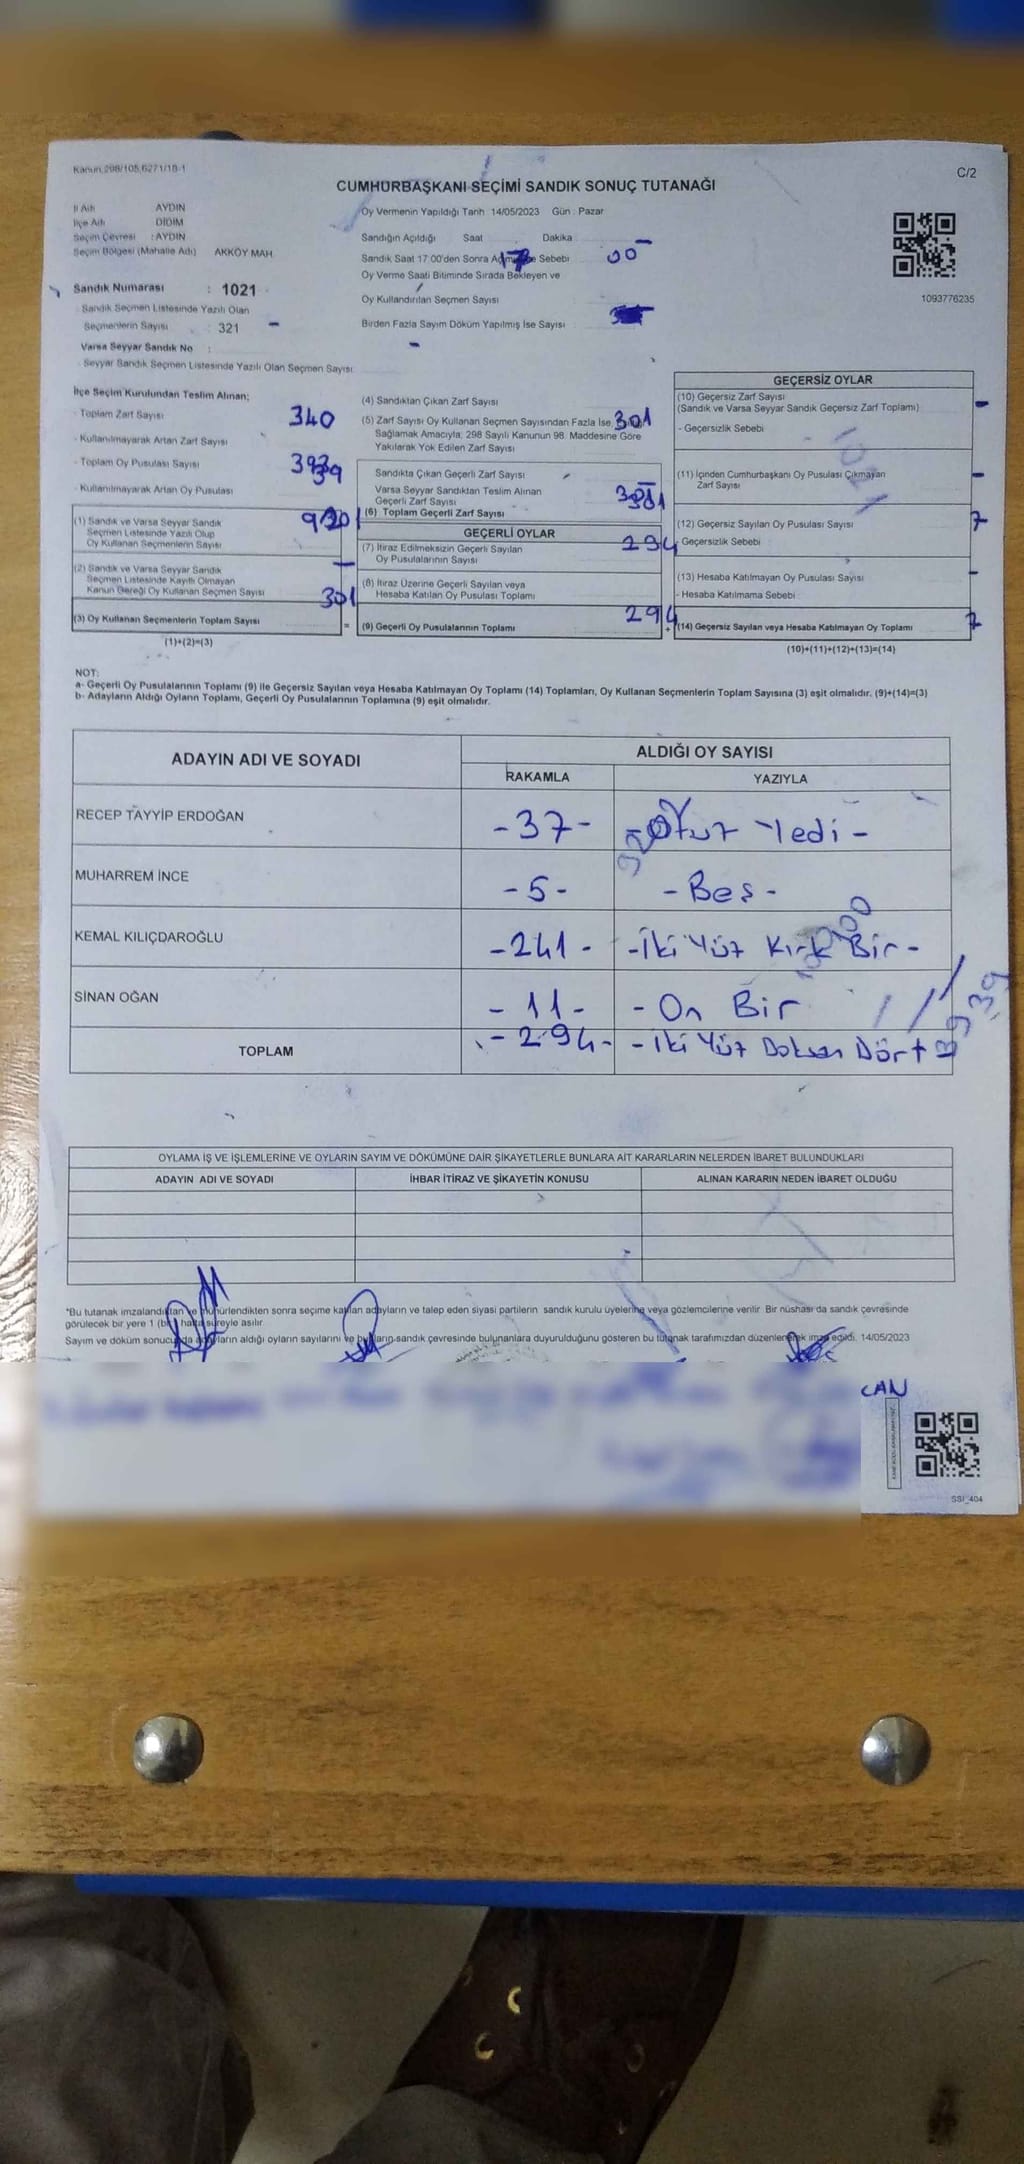 Kanun:298/105,6271/18-1
C/2
CUMHURBAŞKANI SEÇİMİ SANDIK SONUÇ TUTANAĞI
İl Adı AYDIN
İlçe Adı DİDİM
Seçim Çevresi : AYDIN
Seçim Bölgesi (Mahalle Adı) AKKÖY MAH.
Sandık Numarası : 1021
Sandık Seçmen Listesinde Yazılı Olan
Seçmenlerin Sayısı : 321 -
Varsa Seyyar Sandık No :
Seyyar Sandık Seçmen Listesinde Yazılı Olan Seçmen Sayısı
Oy Vermenin Yapıldığı Tarih 14/05/2023 Gün : Pazar
Sandığın Açıldığı Saat Dakika
Sandık Saat 17.00'den Sonra Sebebi 17 00
Oy Verme Saati Bitiminde Sırada Bekleyen ve
Oy Kullandırılan Seçmen Sayısı
Birden Fazla Sayım Döküm Yapılmış İse Sayısı
1093776235
İlçe Seçim Kurulundan Teslim Alınan;
- Toplam Zarf Sayısı 340
- Kullanılmayarak Artan Zarf Sayısı 39
- Toplam Oy Pusulası Sayısı
- Kullanılmayarak Artan Oy Pusulası
(1) Sandık ve Varsa Seyyar Sandık
Seçmen Listesinde Yazılı Olup
Oy Kullanan Seçmenlerin Sayısı
(2) Sandık ve Varsa Seyyar Sandık
Seçmen Listesinde Kayıtlı Olmayan
Kanun Gereği Oy Kullanan Seçmen Sayısı -
(3) Oy Kullanan Seçmenlerin Toplam Sayısı 301
(1)+(2)=(3)
(4) Sandıktan Çıkan Zarf Sayısı 301
(5) Zarf Sayısı Oy Kullanan Seçmen Sayısından Fazla İse,
Sağlamak Amacıyla, 298 Sayılı Kanunun 98. Maddesine Göre
Yakılarak Yok Edilen Zarf Sayısı -
Sandıkta Çıkan Geçerli Zarf Sayısı
Varsa Seyyar Sandıktan Teslim Alınan
Geçerli Zarf Sayısı
(6) Toplam Geçerli Zarf Sayısı
GEÇERLİ OYLAR
(7) İtiraz Edilmeksizin Geçerli Sayılan
Oy Pusulalarının Sayısı 294
(8) İtiraz Üzerine Geçerli Sayılan veya
Hesaba Katılan Oy Pusulası Toplamı
= (9) Geçerli Oy Pusulalarının Toplamı 294
GEÇERSİZ OYLAR
(10) Geçersiz Zarf Sayısı
(Sandık ve Varsa Seyyar Sandık Geçersiz Zarf Toplamı) -
- Geçersizlik Sebebi
(11) İçinden Cumhurbaşkanı Oy Pusulası Çıkmayan
Zarf Sayısı -
(12) Geçersiz Sayılan Oy Pusulası Sayısı 7
Geçersizlik Sebebi
(13) Hesaba Katılmayan Oy Pusulası Sayısı -
- Hesaba Katılmama Sebebi
+ (14) Geçersiz Sayılan veya Hesaba Katılmayan Oy Toplamı 7
(10)+(11)+(12)+(13)=(14)
1021
NOT:
a- Geçerli Oy Pusulalarının Toplamı (9) ile Geçersiz Sayılan veya Hesaba Katılmayan Oy Toplamı (14) Toplamları, Oy Kullanan Seçmenlerin Toplam Sayısına (3) eşit olmalıdır. (9)+(14)=(3)
b- Adayların Aldığı Oyların Toplamı, Geçerli Oy Pusulalarının Toplamına (9) eşit olmalıdır.
ADAYIN ADI VE SOYADI ALDIĞI OY SAYISI
RAKAMLA YAZIYLA
RECEP TAYYİP ERDOĞAN -37- -Otuz Yedi -
MUHARREM İNCE -5- -Beş-
KEMAL KILIÇDAROĞLU -241- -İki Yüz Kırk Bir-
SİNAN OĞAN -11- -On Bir
TOPLAM -294- -İki Yüz Doksan Dört
39
OYLAMA İŞ VE İŞLEMLERİNE VE OYLARIN SAYIM VE DÖKÜMÜNE DAİR ŞİKAYETLERLE BUNLARA AİT KARARLARIN NELERDEN İBARET BULUNDUKLARI
ADAYIN ADI VE SOYADI İHBAR İTİRAZ VE ŞİKAYETİN KONUSU ALINAN KARARIN NEDEN İBARET OLDUĞU
*Bu tutanak imzalandıktan ve mühürlendikten sonra seçime katılan adayların ve talep eden siyasi partilerin sandık kurulu üyelerine veya gözlemcilerine verilir. Bir nüshası da sandık çevresinde
görülecek bir yere 1 (bir) hafta süreyle asılır.
Sayım ve döküm sonucunda adayların aldığı oyların sayılarını ve bunların sandık çevresinde bulunanlara duyurulduğunu gösteren bu tutanak tarafımızdan düzenlenerek imza edildi. 14/05/2023
CAN
SSI_404